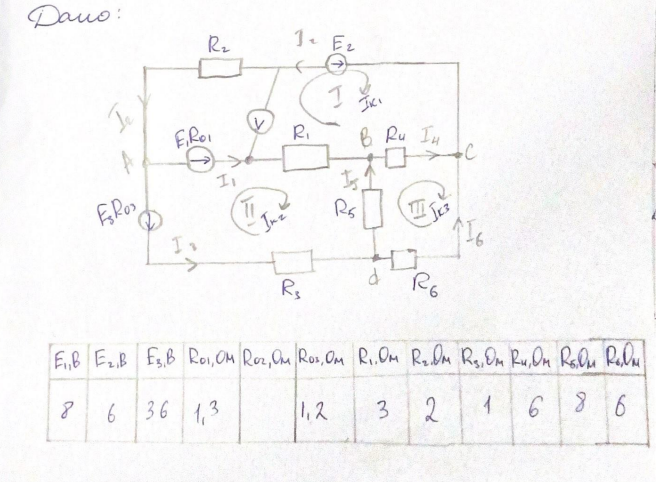 Дано:
R₂ I₂ E₂
I Iк₁
I₂ V
E₁R₀₁ R₁ B R₄ I₄
A I₁ I₅ C
E₃R₀₃ II Iк₂ R₅ III Iк₃
I₃ I₆
R₃ d R₆
E₁,В E₂,В E₃,В R₀₁,Ом R₀₂,Ом R₀₃,Ом R₁,Ом R₂,Ом R₃,Ом R₄,Ом R₅,Ом R₆,Ом
8 6 36 1,3 1,2 3 2 1 6 8 6